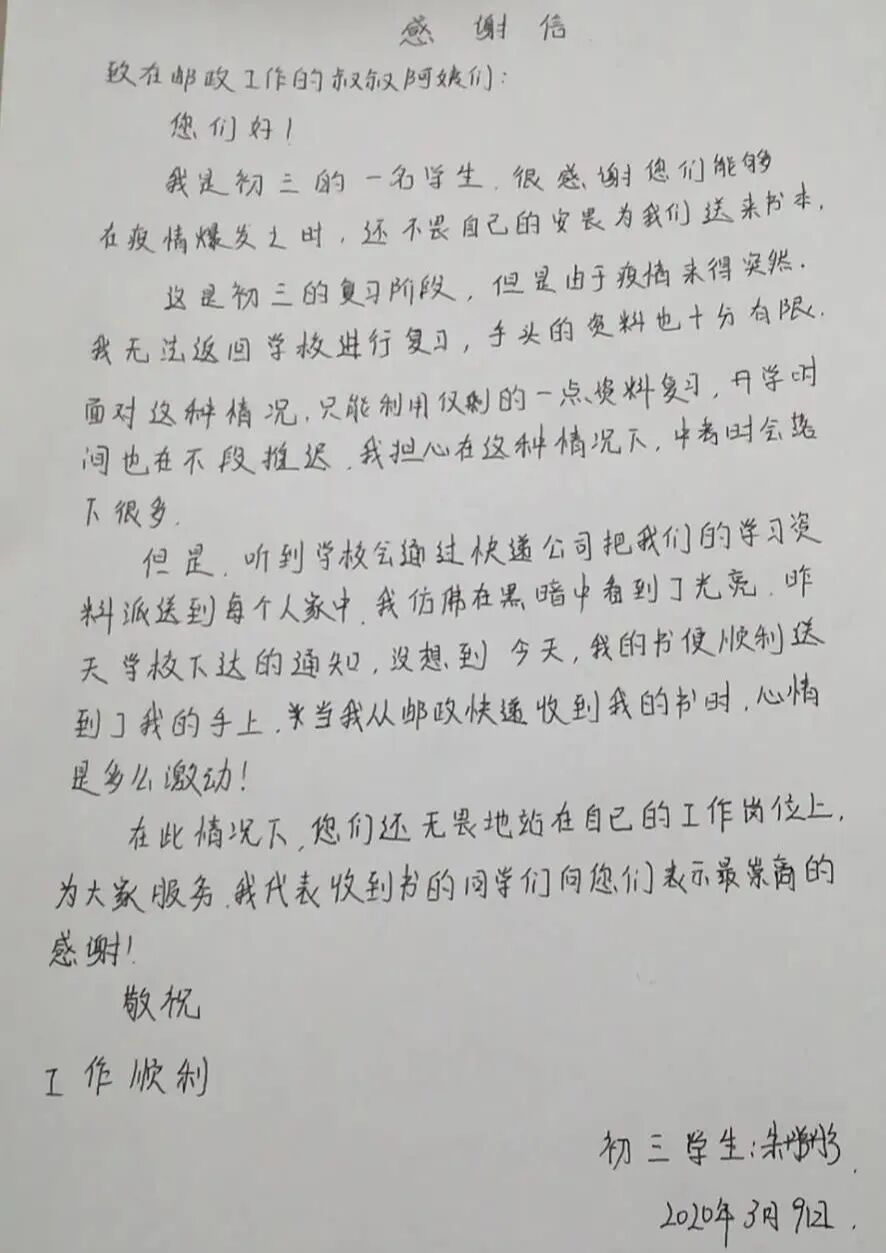 感谢信
致在邮政工作的叔叔阿姨们：
您们好！
我是初三的一名学生，很感谢您们能够
在疫情爆发之时，还不畏自己的安畏为我们送来书本．
这是初三的复习阶段，但是由于疫情来得突然．
我无法返回学校进行复习，手头的资料也十分有限．
面对这种情况，只能利用仅剩的一点资料复习，开学时
间也在不段推迟．我担心在这种情况下，中考时会落
下很多．
但是，听到学校会通过快递公司把我们的学习资
料派送到每个人家中，我仿佛在黑暗中看到了光亮．昨
天学校下达的通知，没想到今天，我的书便顺利送
到了我的手上．当我从邮政快递收到我的书时，心情
是多么激动！
在此情况下，您们还无畏地站在自己的工作岗位上，
为大家服务．我代表收到书的同学们向您们表示最崇高的
感谢！
敬祝
工作顺利
初三学生：朱
2020年3月9日．